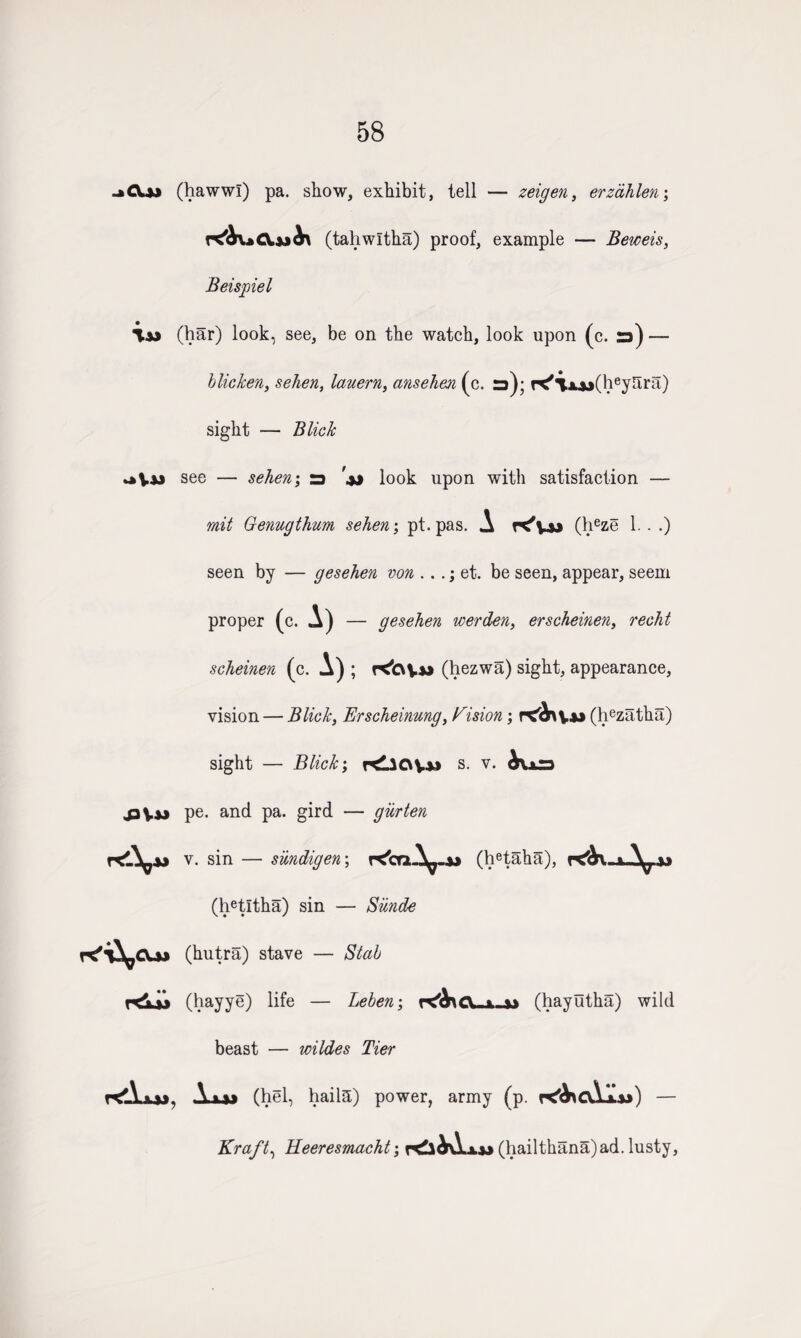 58
ܚܘܝ (ḥawwī) pa. show, exhibit, tell — zeigen, erzählen;
ܬܚܘܝܬܐ (taḥwīthā) proof, example — Beweis,
Beispiel
ܚܪ (ḥār) look, see, be on the watch, look upon (c. ܒ) —
blicken, sehen, lauern, ansehen (c. ܒ); ܚܝܪܐ (ḥᵉyārā)
sight — Blick
ܚܙܝ see — sehen; ܒ 'ܚ look upon with satisfaction —
mit Genugthum sehen; pt. pas. ܠ ܚܙܐ (ḥᵉzē l. . .)
seen by — gesehen von . . .; et. be seen, appear, seem
proper (c. ܠ) — gesehen werden, erscheinen, recht
scheinen (c. ܠ) ; ܚܙܘܐ (ḥezwā) sight, appearance,
vision — Blick, Erscheinung, Vision; ܚܙܬܐ (ḥᵉzāthā)
sight — Blick; ܚܙܘܢܐ s. v. ܒܝܬ
ܚܙܩ pe. and pa. gird — gürten
ܚܛܐ v. sin — sündigen; ܚܛܗܐ (ḥᵉṭāhā), ܚܛܝܬܐ
(ḥᵉṭīthā) sin — Sünde
ܚܘܛܪܐ (ḥuṭrā) stave — Stab
ܚܝ̈ܐ (ḥayyē) life — Leben; ܚܝܘܬܐ (ḥayūthā) wild
beast — wildes Tier
ܚܝܠܐ, ܚܝܠ (ḥēl, ḥailā) power, army (p. ܚܝ̈ܠܘܬܐ) —
Kraft, Heeresmacht; ܚܝܠܬܢܐ (ḥailthānā) ad. lusty,